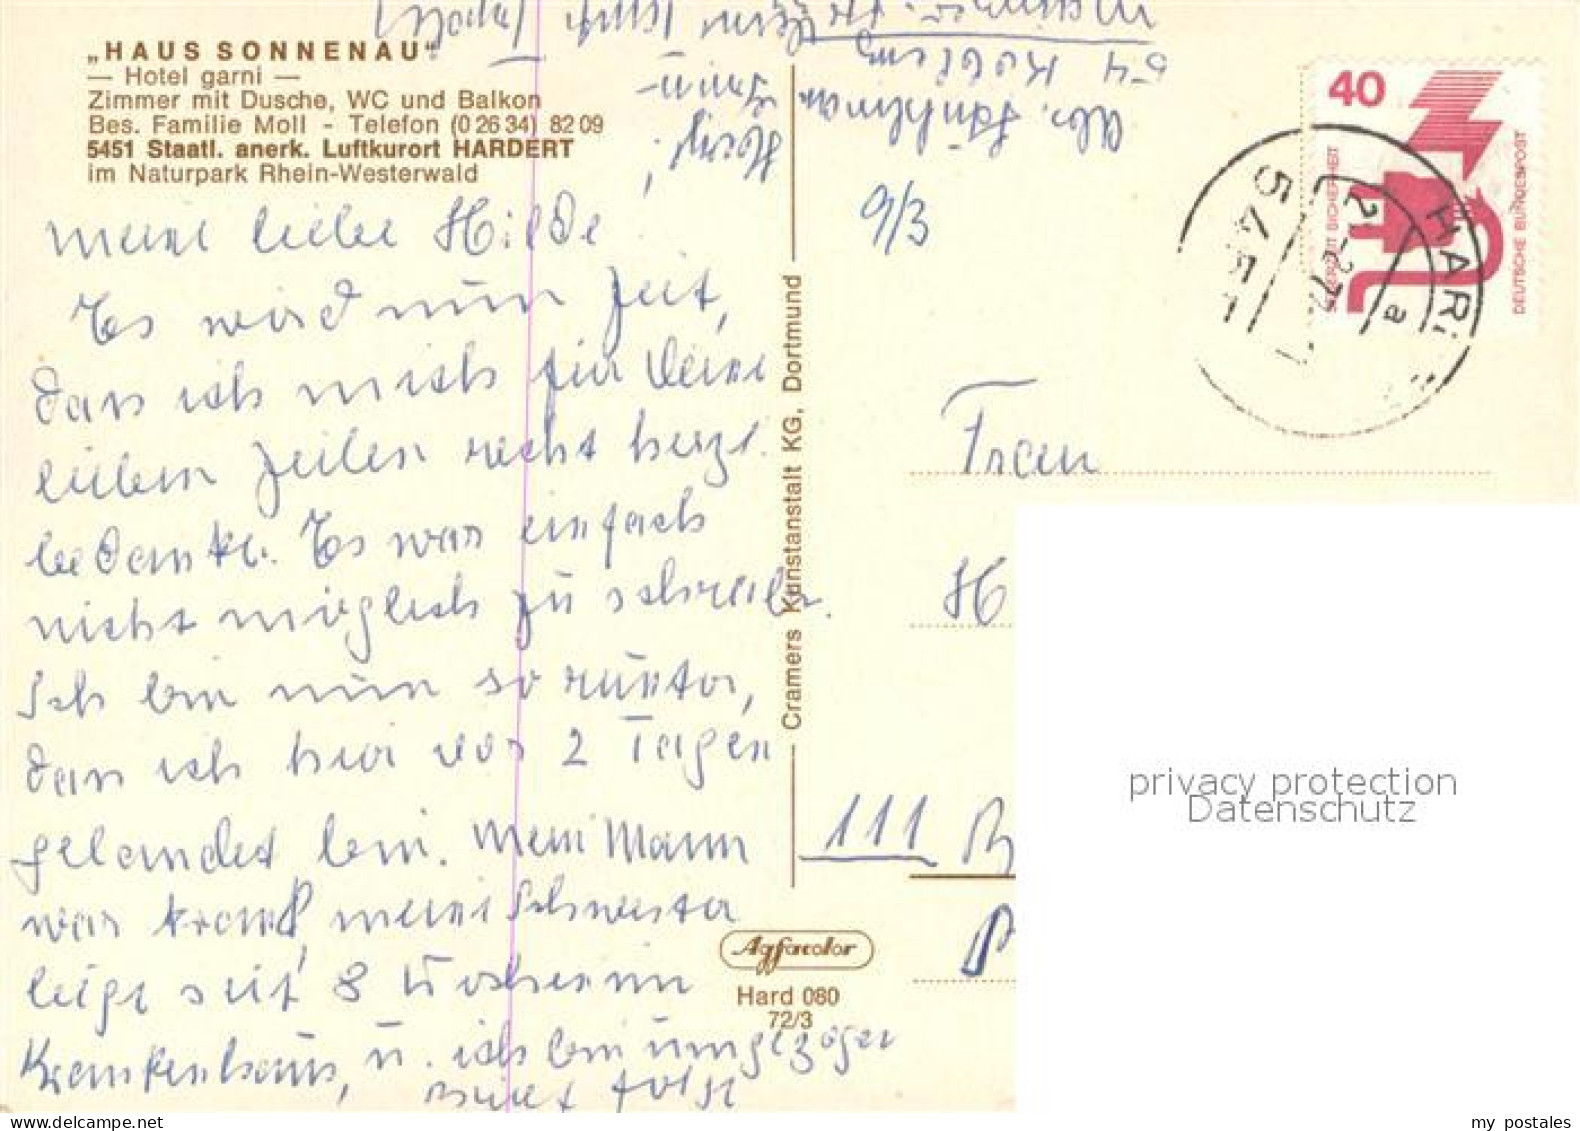 „HAUS SONNENAU“
— Hotel garni —
Zimmer mit Dusche, WC und Balkon
Bes. Familie Moll - Telefon (0 26 34) 82 09
5451 Staatl. anerk. Luftkurort HARDERT
im Naturpark Rhein-Westerwald
meine liebe Hilde,
Es wird nun Zeit,
dass ich mich für Deine
lieben Zeilen recht herzl.
bedanke. Es war einfach
nicht möglich zu schreiben.
Ich bin nun so runter,
dass ich hier vor 2 Tagen
gelandet bin. Mein Mann
war krank, meine Schwester
liegt seit 8 Wochen im
Krankenhaus, u. ich bin umgezogen
Brief folgt
Abs.
54 Koblenz
9/3
Cramers Kunstanstalt KG, Dortmund
Agfacolor
Hard 080
72/3
40
JEDERZEIT SICHERHEIT
DEUTSCHE BUNDESPOST
5451 HAR
a
Frau
H
111 B
privacy protection
Datenschutz
my postales